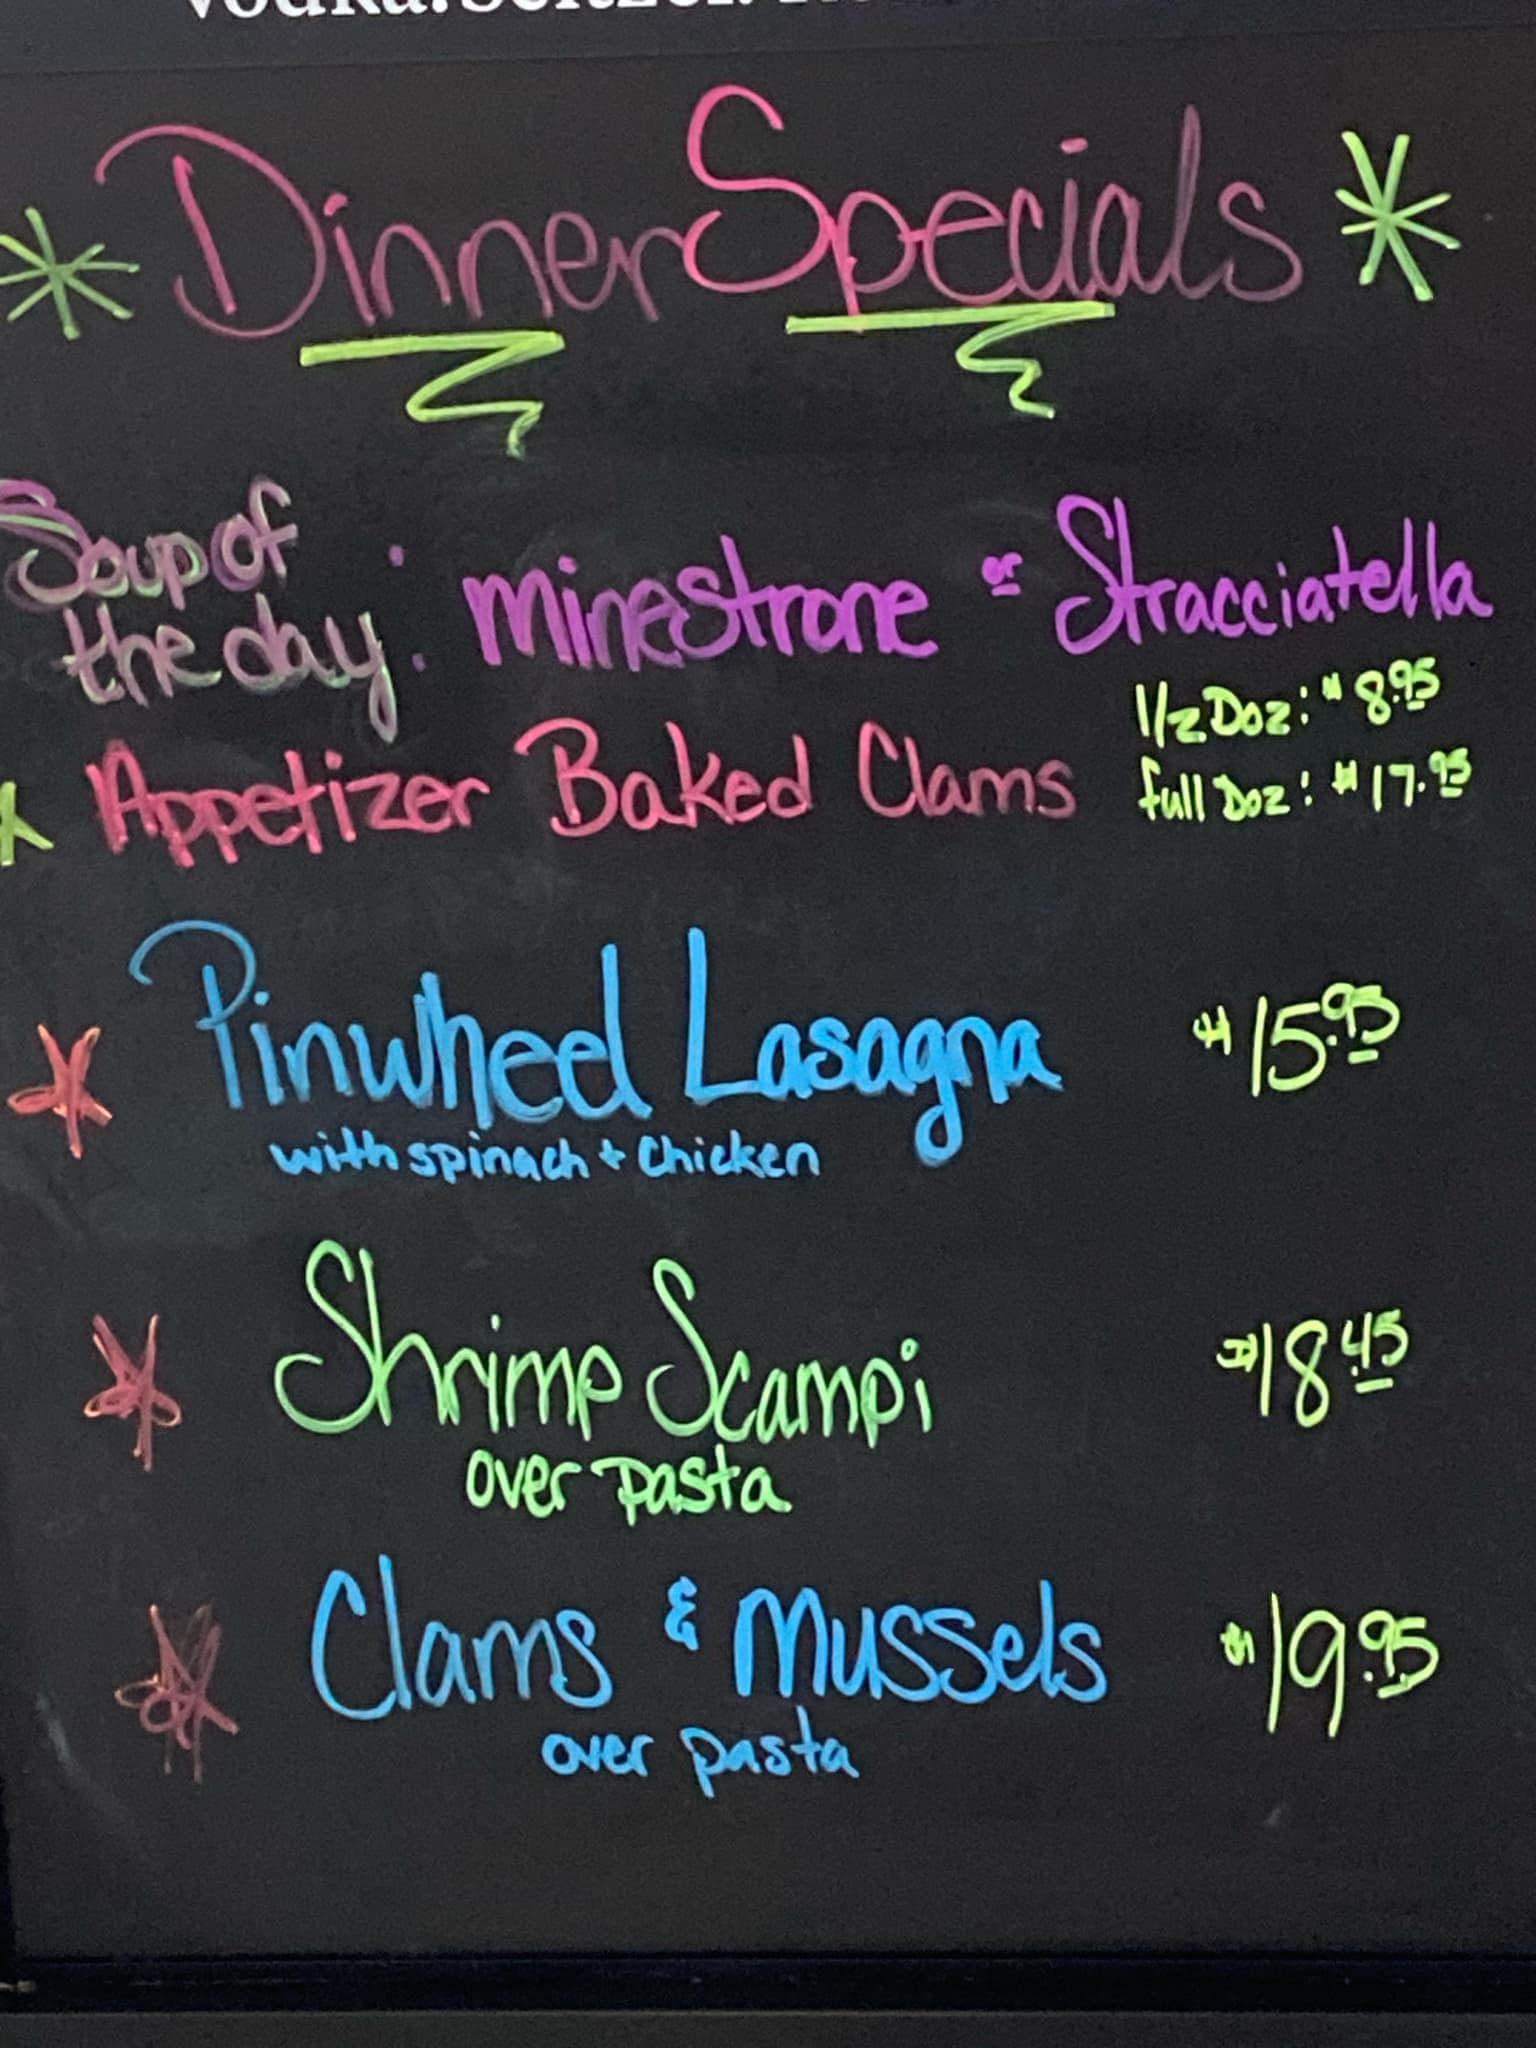 Vodka.Seltzer.
Dinner Specials
Soup of
the day: Minestrone or Stracciatella
Appetizer Baked Clams
1/2 Doz: $8.95
full Doz: $17.95
Pinwheel Lasagna $15.95
with spinach + Chicken
Shrimp Scampi $18.45
over pasta
Clams & Mussels $19.95
over pasta